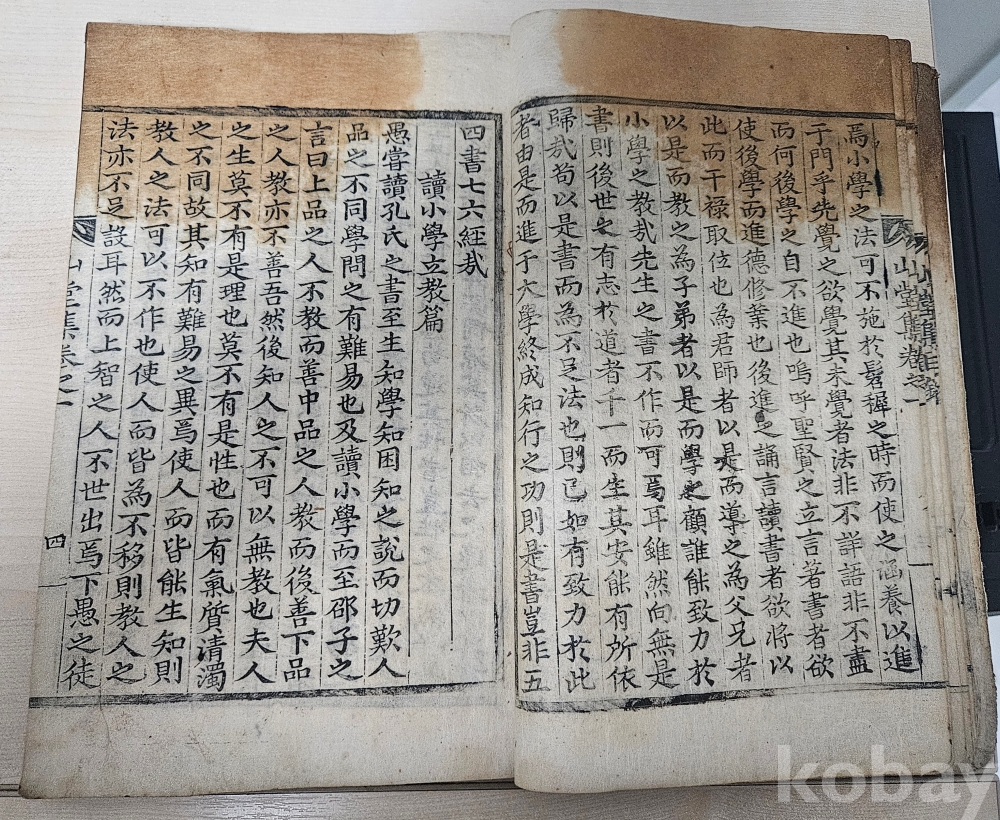 焉小學之法可不施於髫穉之時而使之涵養以進
于門乎先覺之欲覺其未覺者法非不詳語非不盡
而何後學之自不進也嗚呼聖賢之立言著書者欲
使後學而進德修業也後進之誦言讀書者欲將以
此而干祿取位也為君師者以是而導之為父兄者
以是而教之為子弟者以是而學之顧誰能致力於
小學之教㢤先生之書不作而可焉耳雖然向無是
書則後世之有志於道者千一而生其安能有所依
歸㢤苟以是書而為不足法也則已如有致力於此
者由是而進于大學終成知行之功則是書豈非五
山堂集卷之一
四書七六經㢤
讀小學立教篇
愚嘗讀孔氏之書至生知學知困知之說而切歎人
品之不同學問之有難易也及讀小學而至邵子之
言曰上品之人不教而善中品之人教而後善下品
之人教亦不善吾然後知人之不可以無教也夫人
之生莫不有是理也莫不有是性也而有氣質清濁
之不同故其知有難易之異焉使人而皆能生知則
教人之法可以不作也使人而皆為不移則教人之
法亦不足設耳然而上智之人不世出焉下愚之徒
山堂集卷之一
四
kobay